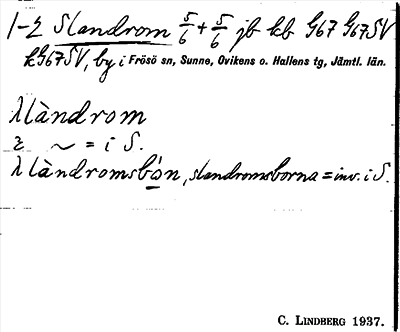 1-2 Slandrom 5/6 + 5/6 jb kb G67 G67SV
kG67SV, by i Frösö sn, Sunne, Ovikens o. Hallens tg, Jämtl. län.
λlàndrom
2 ~ = i S.
λlàndromsbo̱n, slandromsborna = inv. i S.
C. LINDBERG 1937.